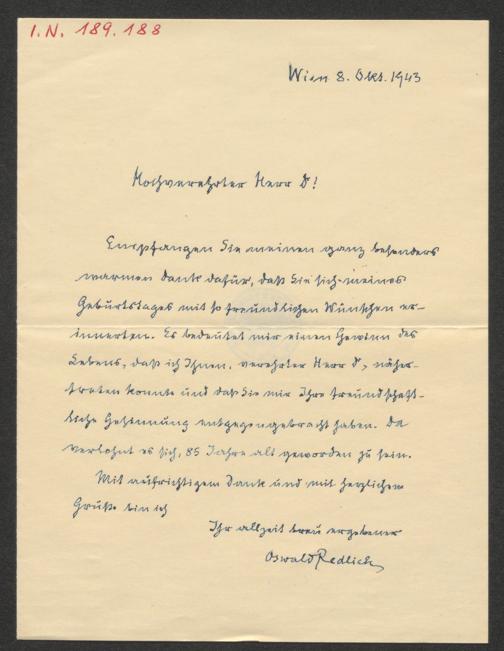 I.N. 189.188
Wien 8. Okt. 1943
Hochverehrter Herr Dr!
Empfangen Sie meinen ganz besonders
warmen Dank dafür, daß Sie sich meines
Geburtstages mit so freundlichen Wünschen er-
innerten. Es bedeutet mir einen Gewinn des
Lebens, daß ich Ihnen, verehrter Herr Dr, näher-
treten konnte und daß Sie mir Ihre freundschaft-
liche Gesinnung entgegengebracht haben. Da
verlohnt es sich, 85 Jahre alt geworden zu sein.
Mit aufrichtigem Dank und mit herzlichem
Gruße bin ich
Ihr allzeit treu ergebener
Oswald Redlich